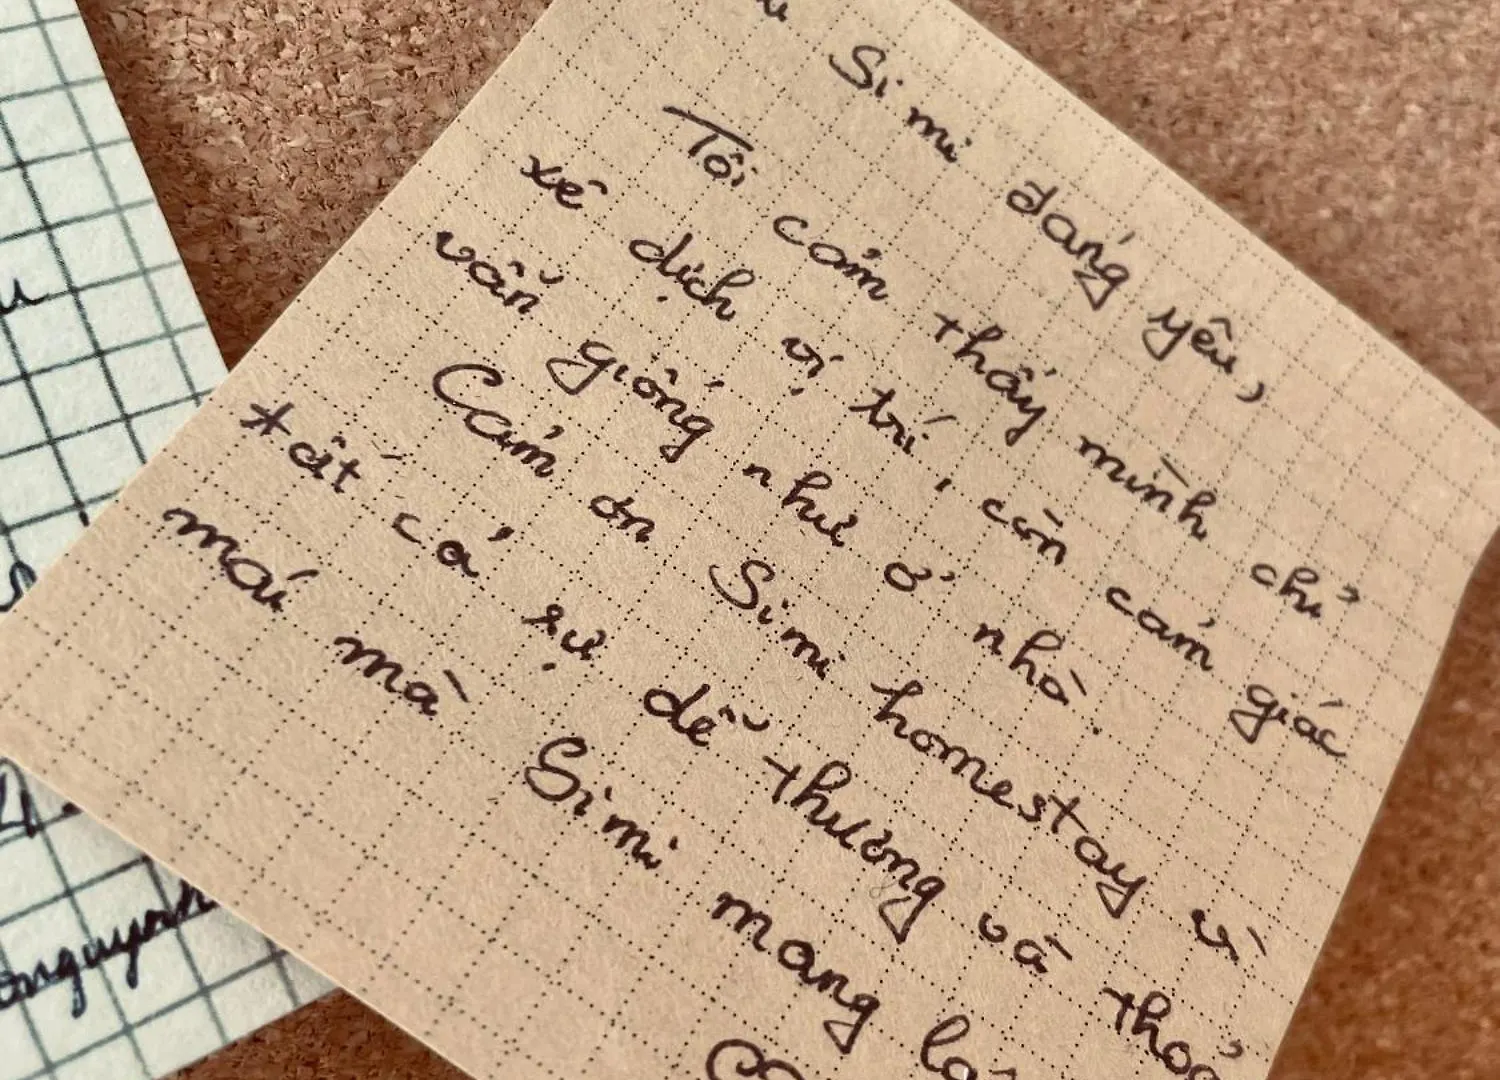 Simi đáng yêu,
Tôi cảm thấy mình chỉ
xê dịch vị trí, còn cảm giác
vẫn giống như ở nhà.
Cảm ơn Simi homestay vì
tất cả sự dễ thương và thoả
mái mà Simi mang